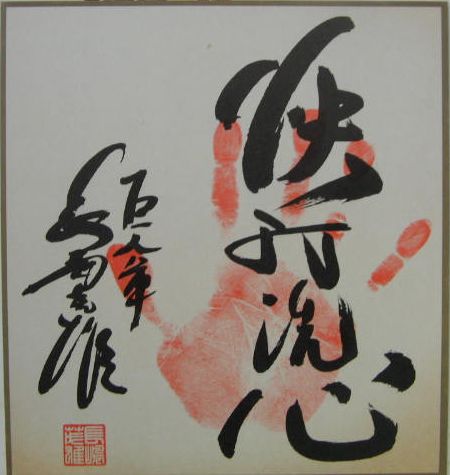 快打洗心
巨人軍
長嶋茂雄
長嶋
茂雄